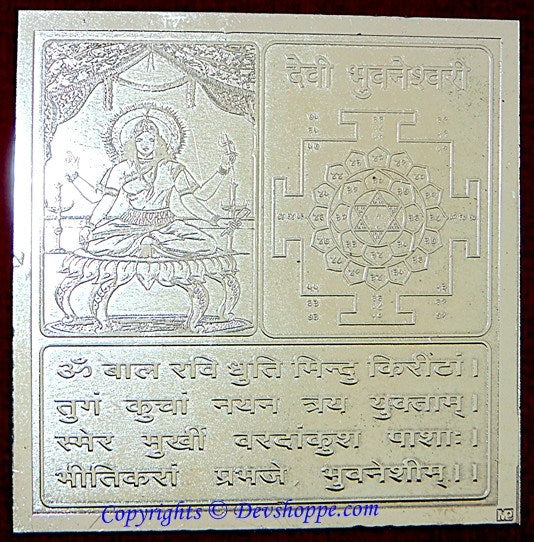 देवी भुवनेश्वरी
ॐ बाल रवि धुति मिन्दु किरींटां।
तुगं कुचां नयन त्रय युक्ताम्।
स्मेर मुखीं वरदांकुश पाशाः।
भीतिकरां प्रभजे भुवनेशीम्।।
Copyrights © Devshoppe.com